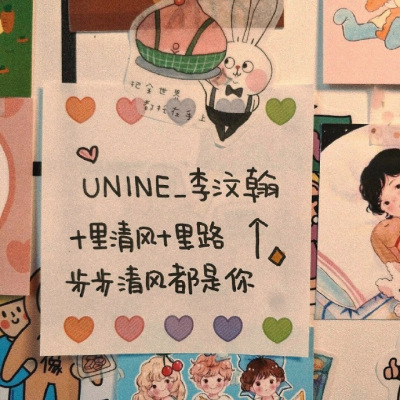 把全世界
都托在手上
UNINE_李汶翰
十里清风十里路
步步清风都是你
像